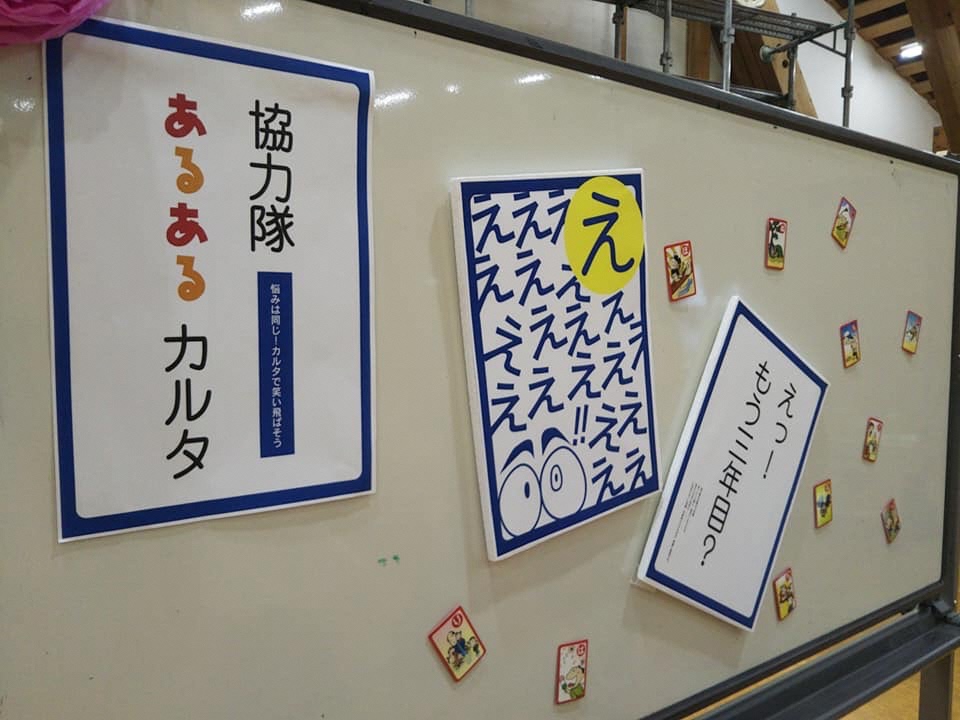 協力隊
あるある カルタ
悩みは同じ！カルタで笑い飛ばそう
え
え え え
え え え
え え え え
え え え え
え え え え
!! え え
え え
えっー
もう三年目？
り
は
は